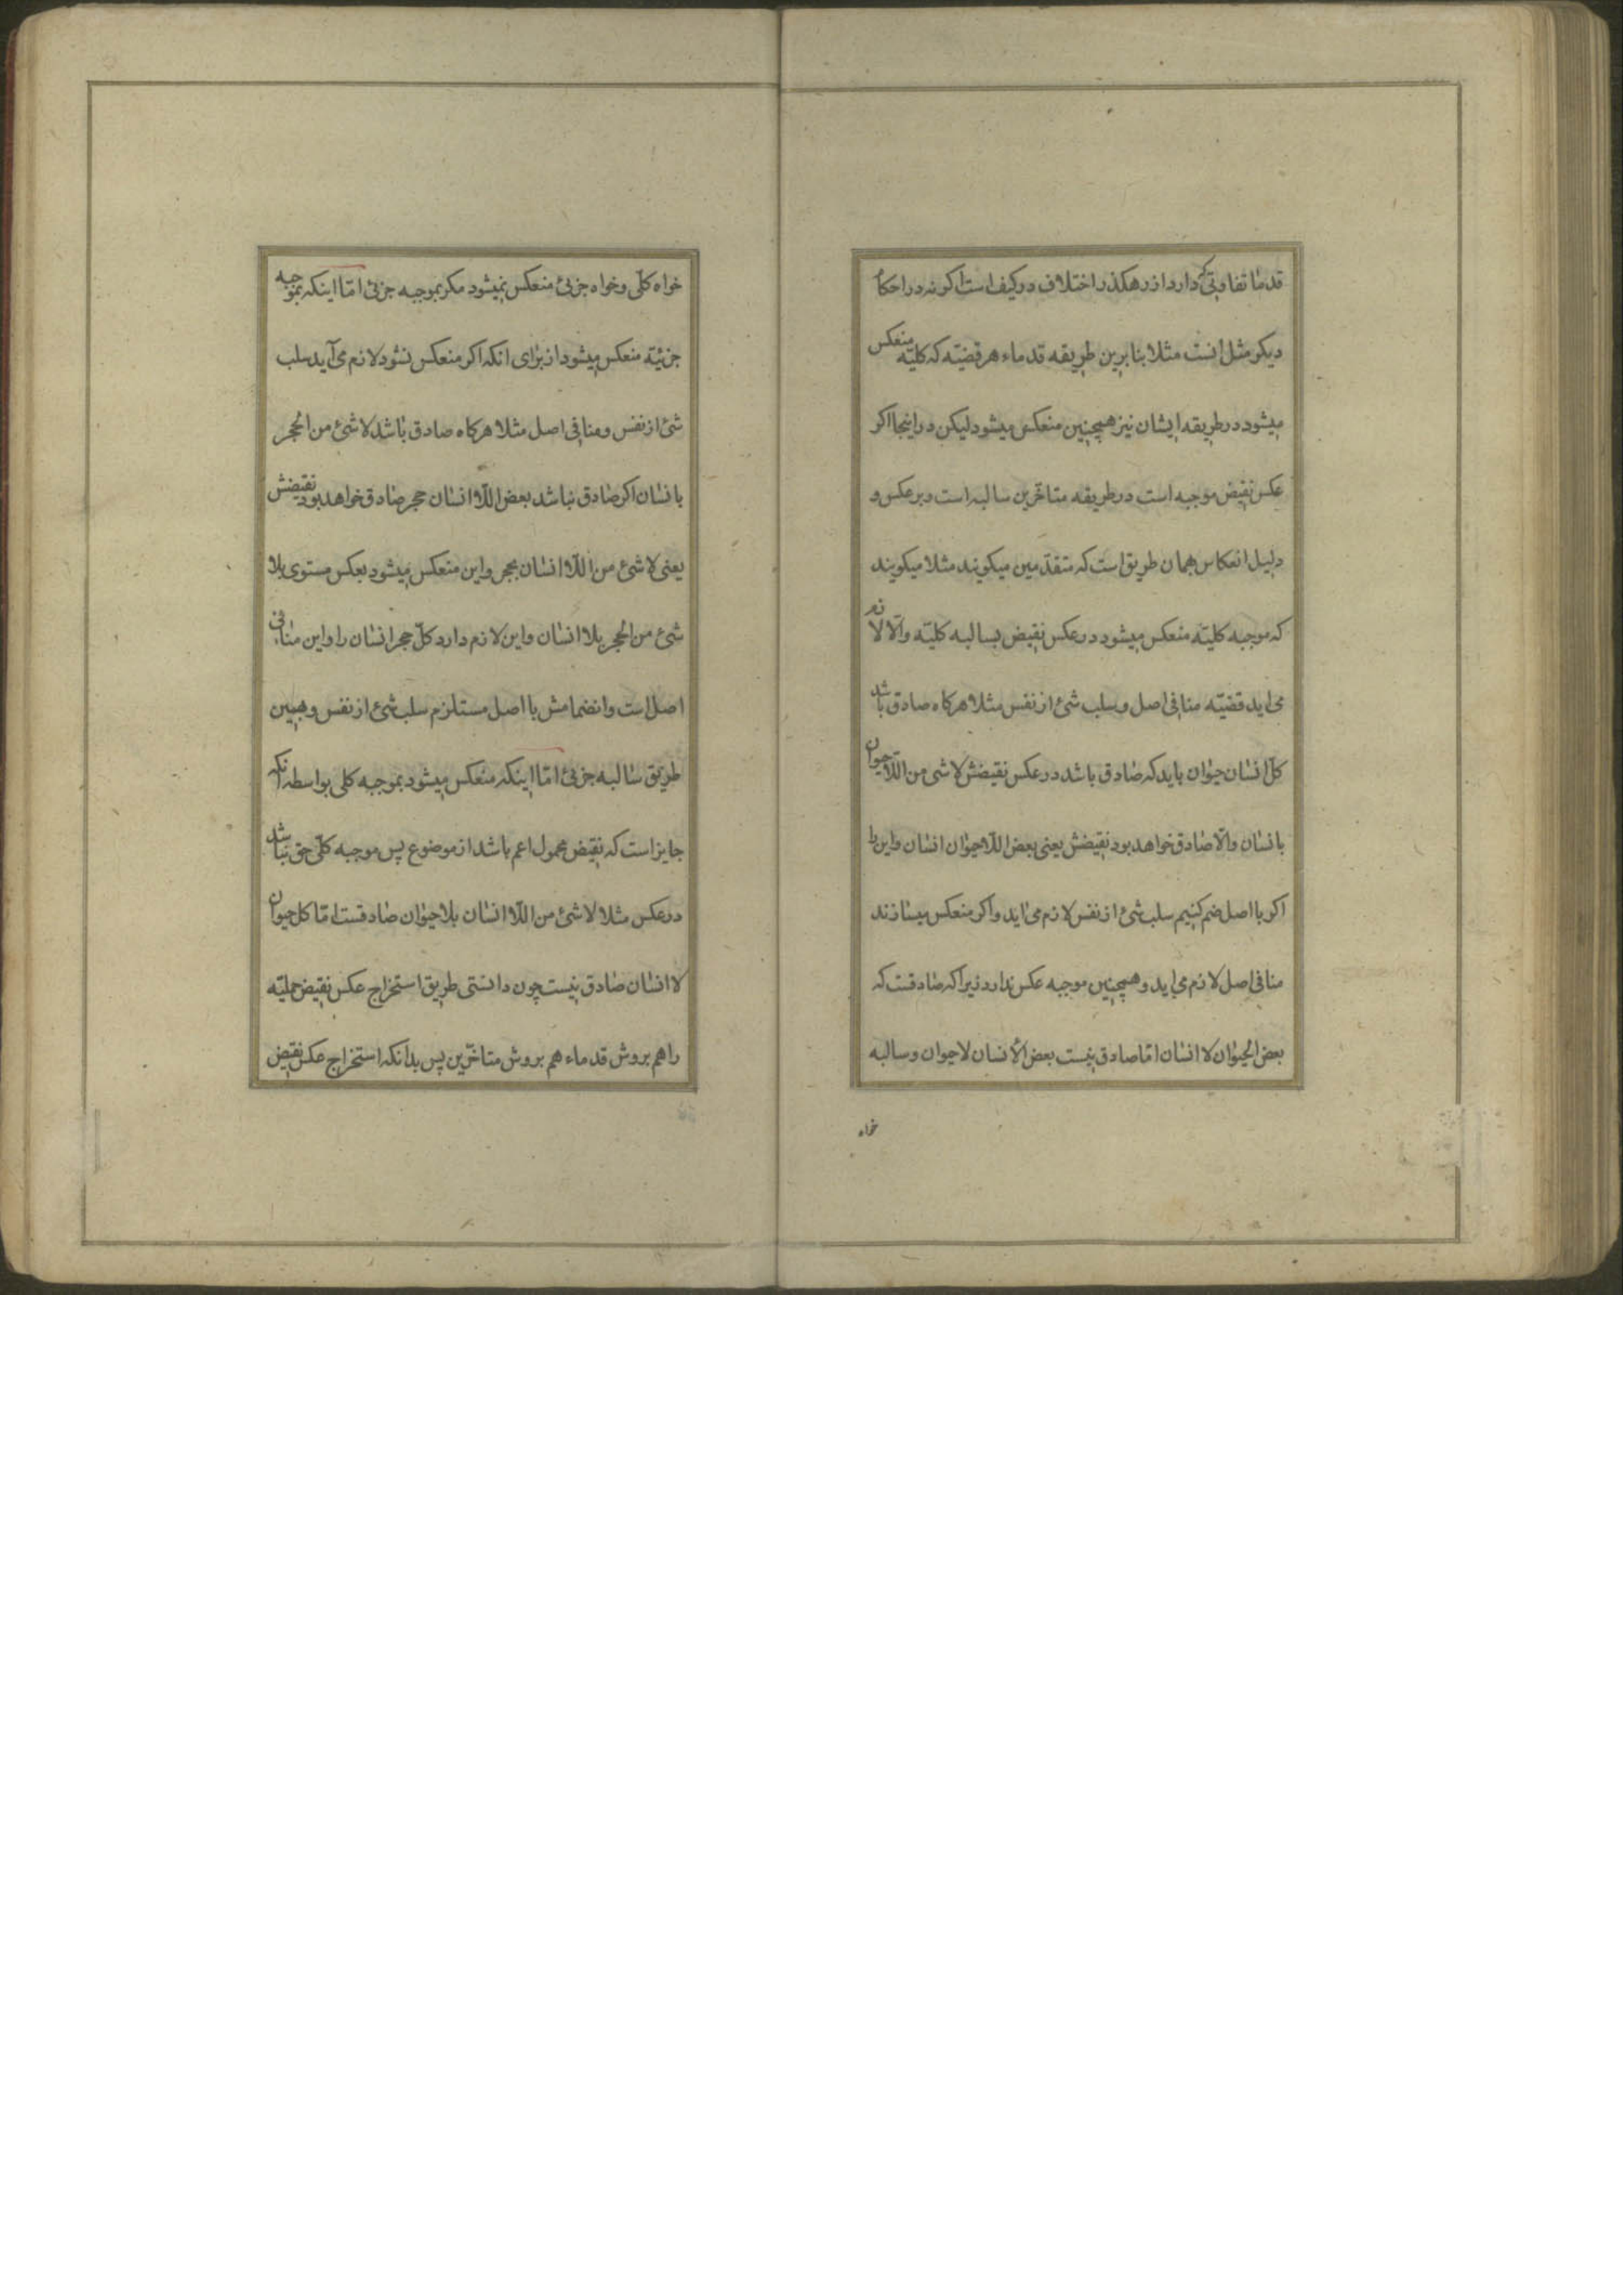 قدما تفاوتی که دارد از رهکذر اختلاف در کیف است اکر نه در احکام
دیکر مثل انست مثلا بنابرین طریقه قدماء هر قضیّه که کلیّه منعکس
میشود در طریقه ایشان نیز همچنین منعکس میشود لیکن در اینجا اکر
عکس نقیض موجبه است در طریقه متاخّرین سالبه است و برعکس و
دلیل انعکاس همان طریق است که متقدّمین میکویند مثلا میکویند
که موجبه کلیّه منعکس میشود در عکس نقیض بسالبه کلیّه والّا لازم
می اید قضیّه منافی اصل و سلب شئ از نفس مثلا هرکاه صادق باشد
کلّ انسان حیوان باید که صادق باشد در عکس نقیضش لا شی من اللّاحیوان
بانسان والّا صادق خواهد بود نقیضش یعنی بعض اللّاحیوان انسان و این را
اکر با اصل ضم کنیم سلب شئ از نفس لازم می اید و اکر منعکس میسازند
منافی اصل لازم می اید و همچنین موجبه عکس ندارد زیرا که صادقست که
بعض الحیوان لا انسان امّا صادق نیست بعض الأنسان لا حیوان و سالبه
خواه
خواه کلّی و خواه جزئی منعکس نمیشود مکر بموجبه جزئی امّا اینکه بموجبه
جزئیّه منعکس میشود از برای انکه اکر منعکس نشود لازم می آید سلب
شئ از نفس و منافی اصل مثلا هرکاه صادق باشد لا شئ من الحجر
بانسان اکر صادق نباشد بعض اللّا انسان حجر صادق خواهد بود نقیضش
یعنی لا شئ من اللّا انسان بحجر و این منعکس میشود بعکس مستوی بلا
شئ من الحجر بلا انسان و این لازم دارد کلّ حجر انسان را و این منافی
اصل است و انضمامش با اصل مستلزم سلب شئ از نفس و همین
طریق سالبه جزئی امّا اینکه منعکس میشود بموجبه کلی بواسطه انکه
جایز است که نقیض محمول اعم باشد از موضوع پس موجبه کلّی حق نباشد
در عکس مثلا لا شئ من اللّا انسان بلا حیوان صادقست امّا کل حیوان
لا انسان صادق نیست چون دانستی طریق استخراج عکس نقیض حملیّه
را هم بروش قدماء هم بروش متاخّرین پس بدانکه استخراج عکس نقیض